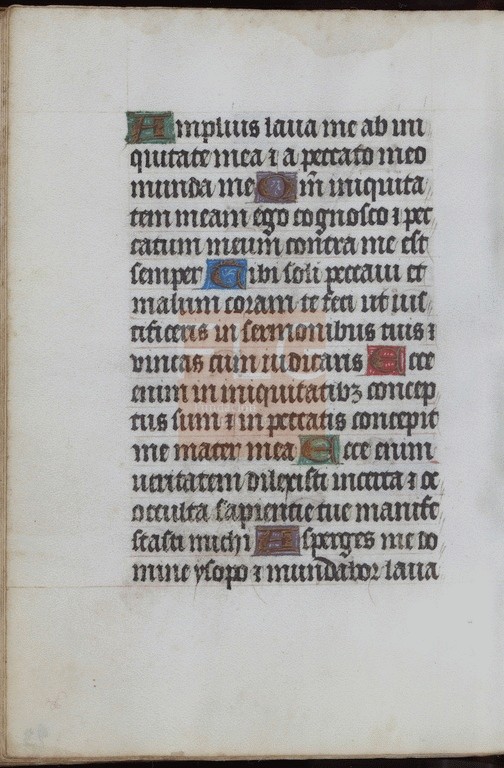 Amplius laua me ab ini
quitate mea ⁊ a peccato meo
munda me Om̄ iniquita
tem meam ego cognosco ⁊ pec
catum meum contra me est
semper Tibi soli peccaui et
malum coram te feci ut ius
tificeris in sermonibus tuis ⁊
vincas cum iudicaris Ecce
enim in iniquitatibꝫ concep
tus sum ⁊ in peccatis concepit
me mater mea Ecce enim
ueritatem dilexisti incerta ⁊ oc
occulta sapientie tue manife
stasti michi Asperges me do
mine ysopo ⁊ mundabor laua